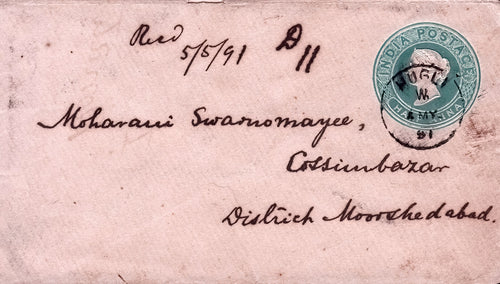 Recd
5/5/91
D
11
INDIA POSTAGE
HALF ANNA
HUGLI
W.
4 MY.
91
Moharani Swarnomayee,
Cossimbazar
District Moorshedabad.